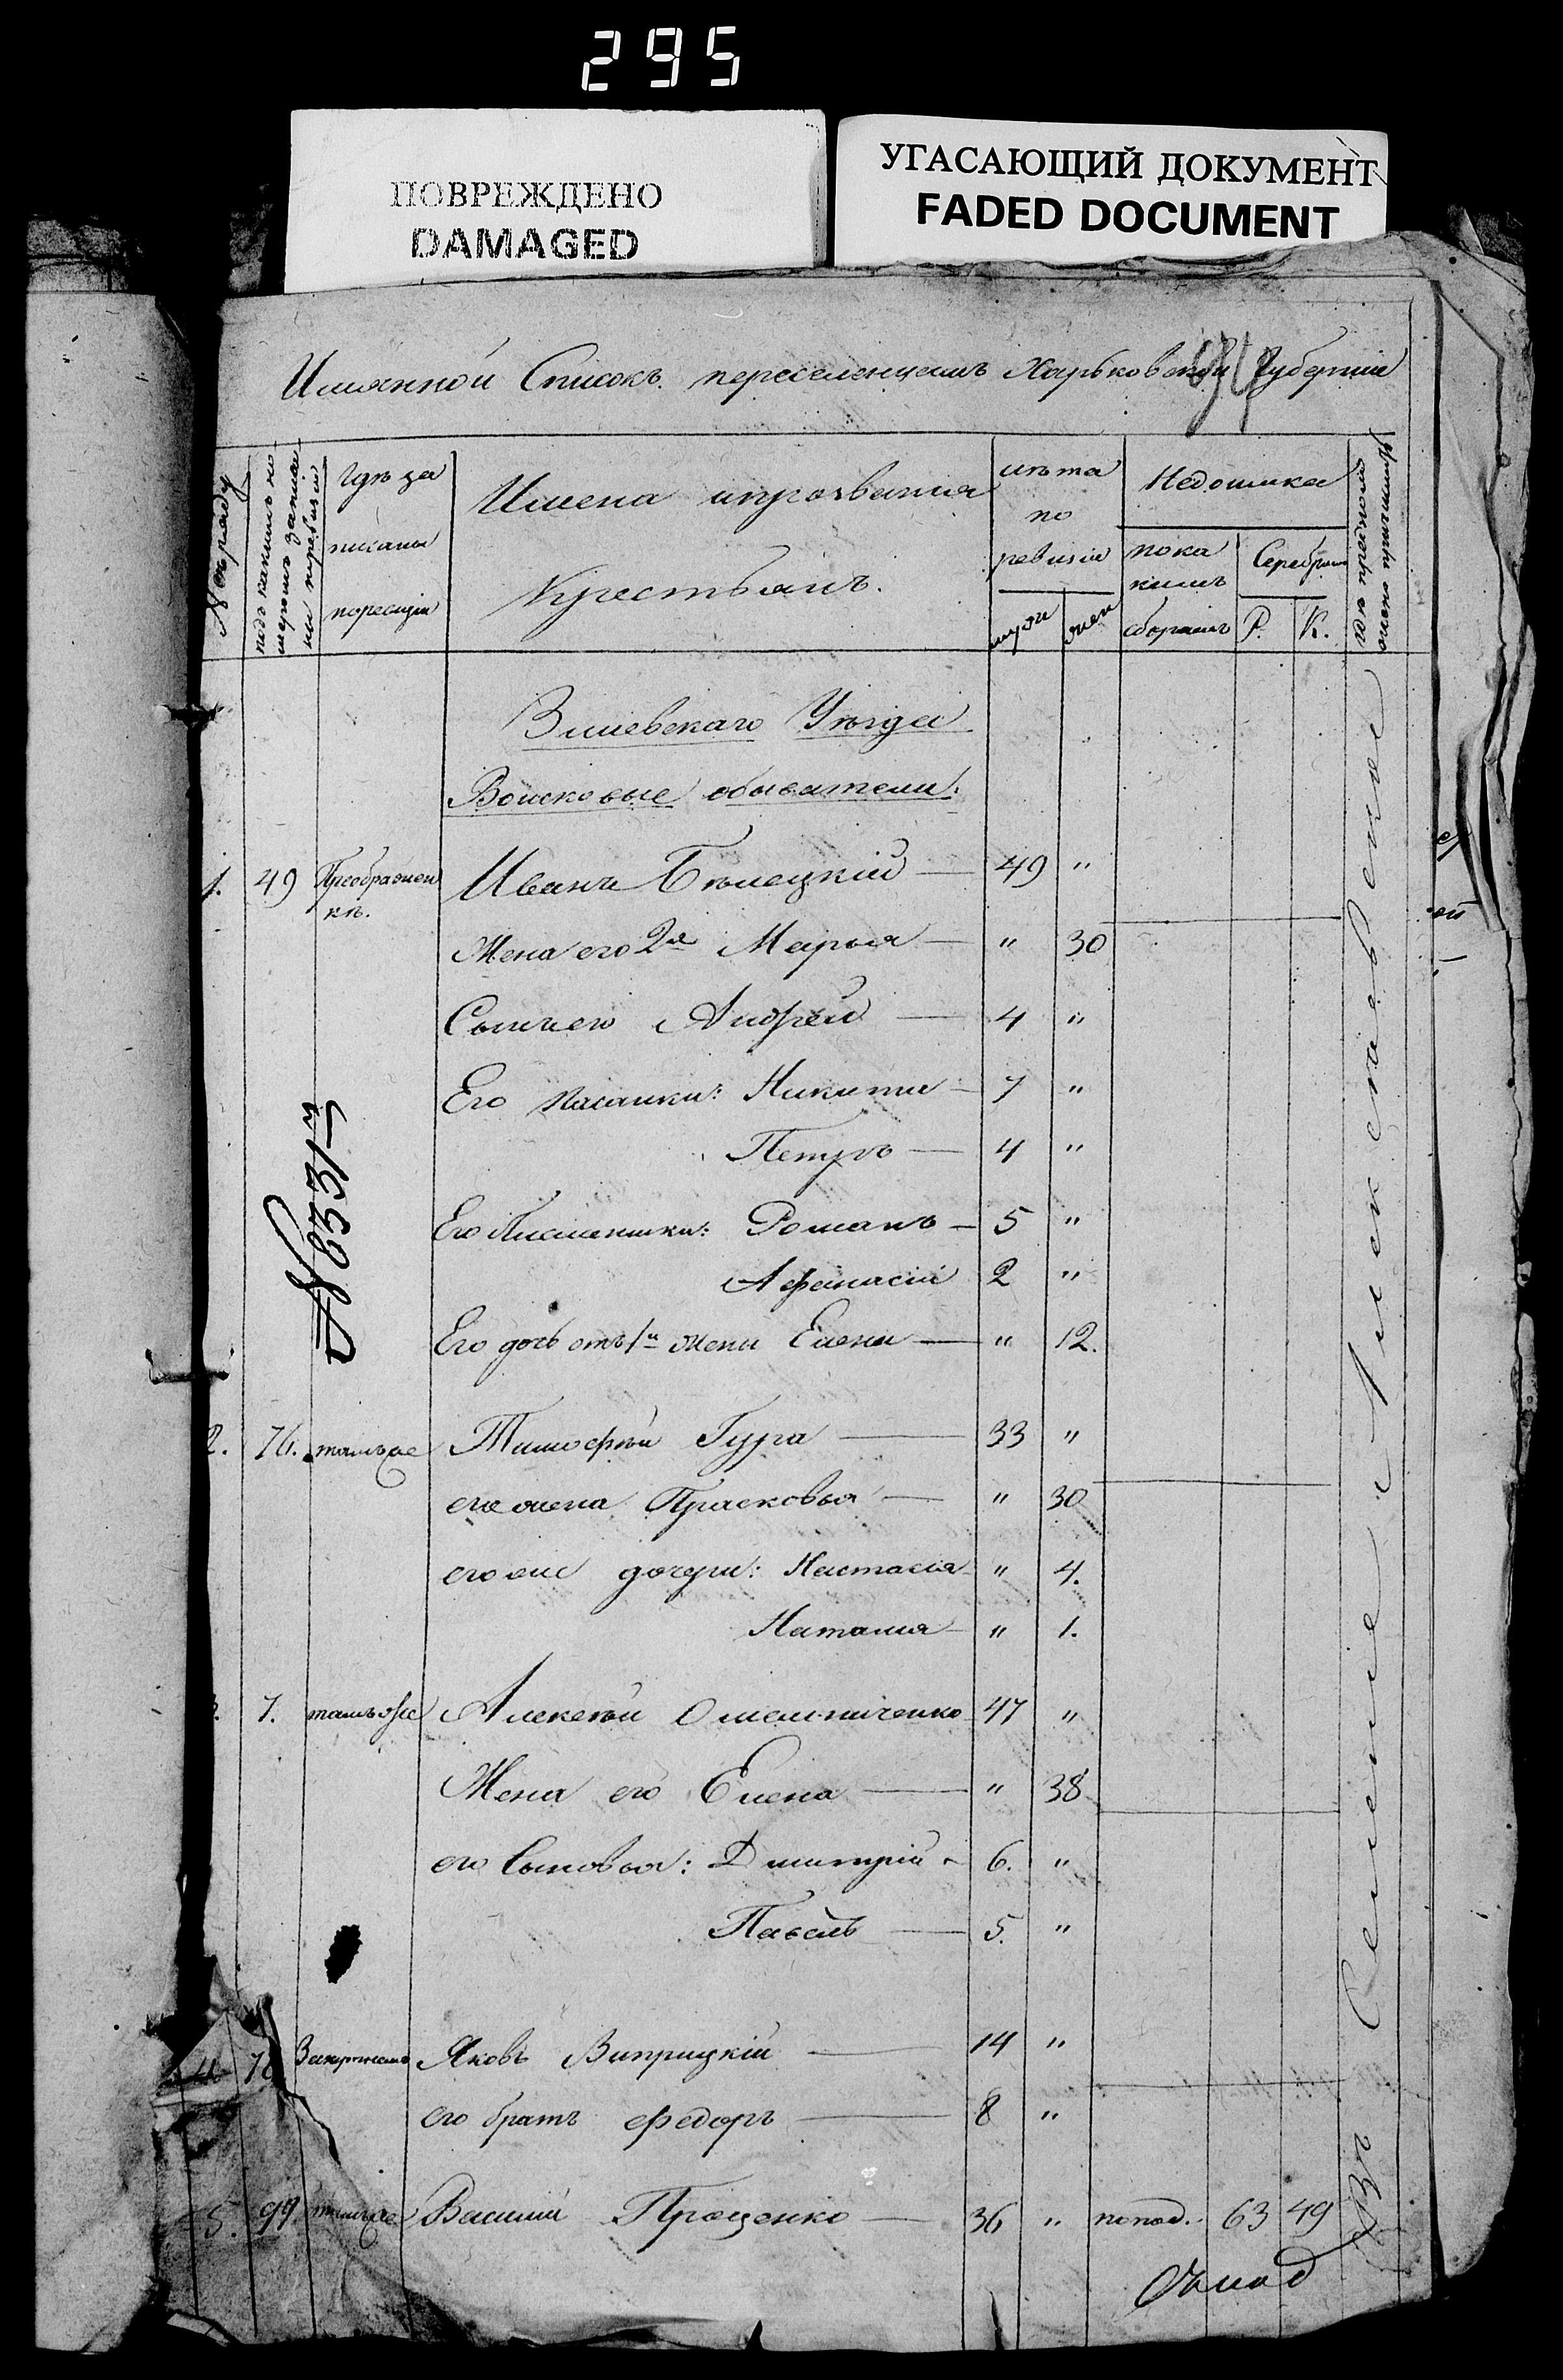 295
ПОВРЕЖДЕНО
DAMAGED
УГАСАЮЩИЙ ДОКУМЕНТ
FADED DOCUMENT
Имянной Списокъ переселенцамъ Харьковской Губерніи
№ по ряду
подъ какимъ но
меромъ записа
ны по ревизіи
Гдѣ за
писаны
по ревизіи
Имена и прозванія
Крестьянъ.
лѣта
по
ревизіи
муж
жен
Недоимка
по ка
кимъ
сборамъ
Серебромъ
Р.
К.
Зміевскаго Уѣзда
Войсковые обыватели.
1. 49 Преображен Иванъ Бѣлецкій — 49 "
кѣ.
Жена его 2я Марья — " 30
Сынъ его Андрей — 4 "
Его пасынки: Никита — 7 "
Петръ — 4 "
Его Племянники: Романъ — 5 "
Афанасій 2 "
Его дочь отъ 1й жены Елена — " 12.
2. 76. тамъ же Тимофѣй Гура — 33 "
его жена Прасковья — " 30
его же дочери: Настасія " 4.
Наталия — " 1.
7. тамъ же Алексѣй Омельниченко 47 "
Жена его Елена — " 38
его Сыновья: Дмитрій - 6. "
Павелъ — 5. "
4 Яковъ Виприцкій — 14 "
его братъ Федоръ — 8 "
5. 99 тамъ же Василий Проценко — 36 " по под. 63 49
Оклад
Въ Селеніе Александровское
№ 853